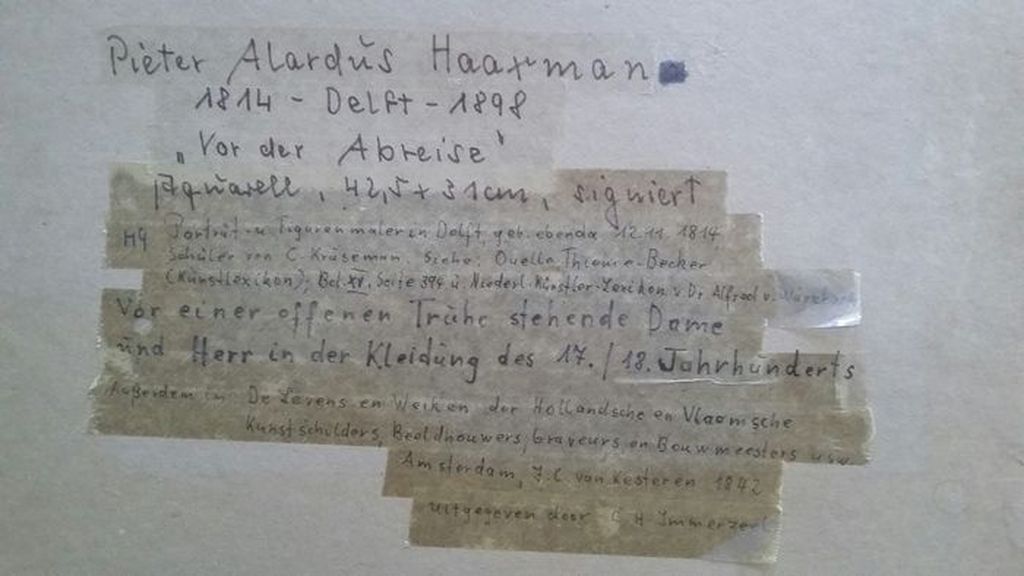 Pieter Alardus Haaxman
1814 - Delft - 1898
„Vor der Abreise'
Aquarell, 42,5 x 31cm, signiert
Portrait- u. Figurenmaler in Delft, geb. ebenda 12.11.1814
Schüler von C. Kruseman. Siehe: Quelle Thieme-Becker
(Künstlexikon), Bd. XV, Seite 394 u. Niederl. Künstler-Lexikon v. Dr. Alfred v.
Vor einer offenen Truhe stehende Dame
und Herr in der Kleidung des 17./18. Jahrhunderts
Außerdem in: De Levens en Werken der Hollandsche en Vlaamsche
Kunstschilders, Beeldhouwers, Graveurs en Bouwmeesters usw.
Amsterdam, J.C. van Kesteren 1842
uitgegeven door C H Immerzeel